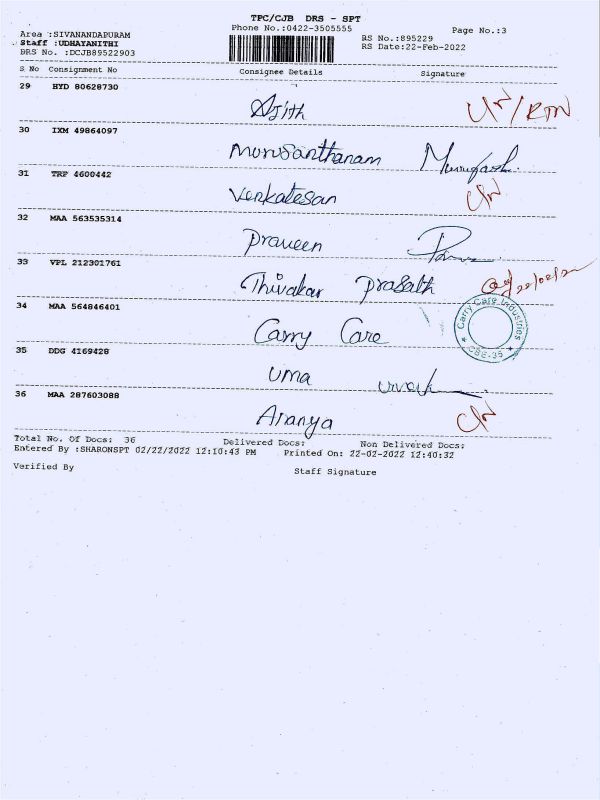 TPC/CJB DRS - SPT
Phone No.:0422-3505555
Page No.:3
Area :SIVANANDAPURAM
RS No.:895229
Staff :UDHAYANITHI
RS Date:22-Feb-2022
DRS No. :DCJB89522903
S No Consignment No Consignee Details Signature
29 HYD 80628730
Ajith
30 IXM 49864097
Murusanthanam
31 TRP 4600442
Venkatesan
32 MAA 563535314
Praveen
33 VPL 212301761
Thivakar Prasath 22/02/22
34 MAA 564846401
Carry Care
Carry Care Industries
CBE-35
35 DDG 4169428
Uma
36 MAA 287603088
Ananya
Total No. Of Docs: 36 Delivered Docs: Non Delivered Docs:
Entered By :SHARONSPT 02/22/2022 12:10:43 PM Printed On: 22-02-2022 12:40:32
Verified By Staff Signature